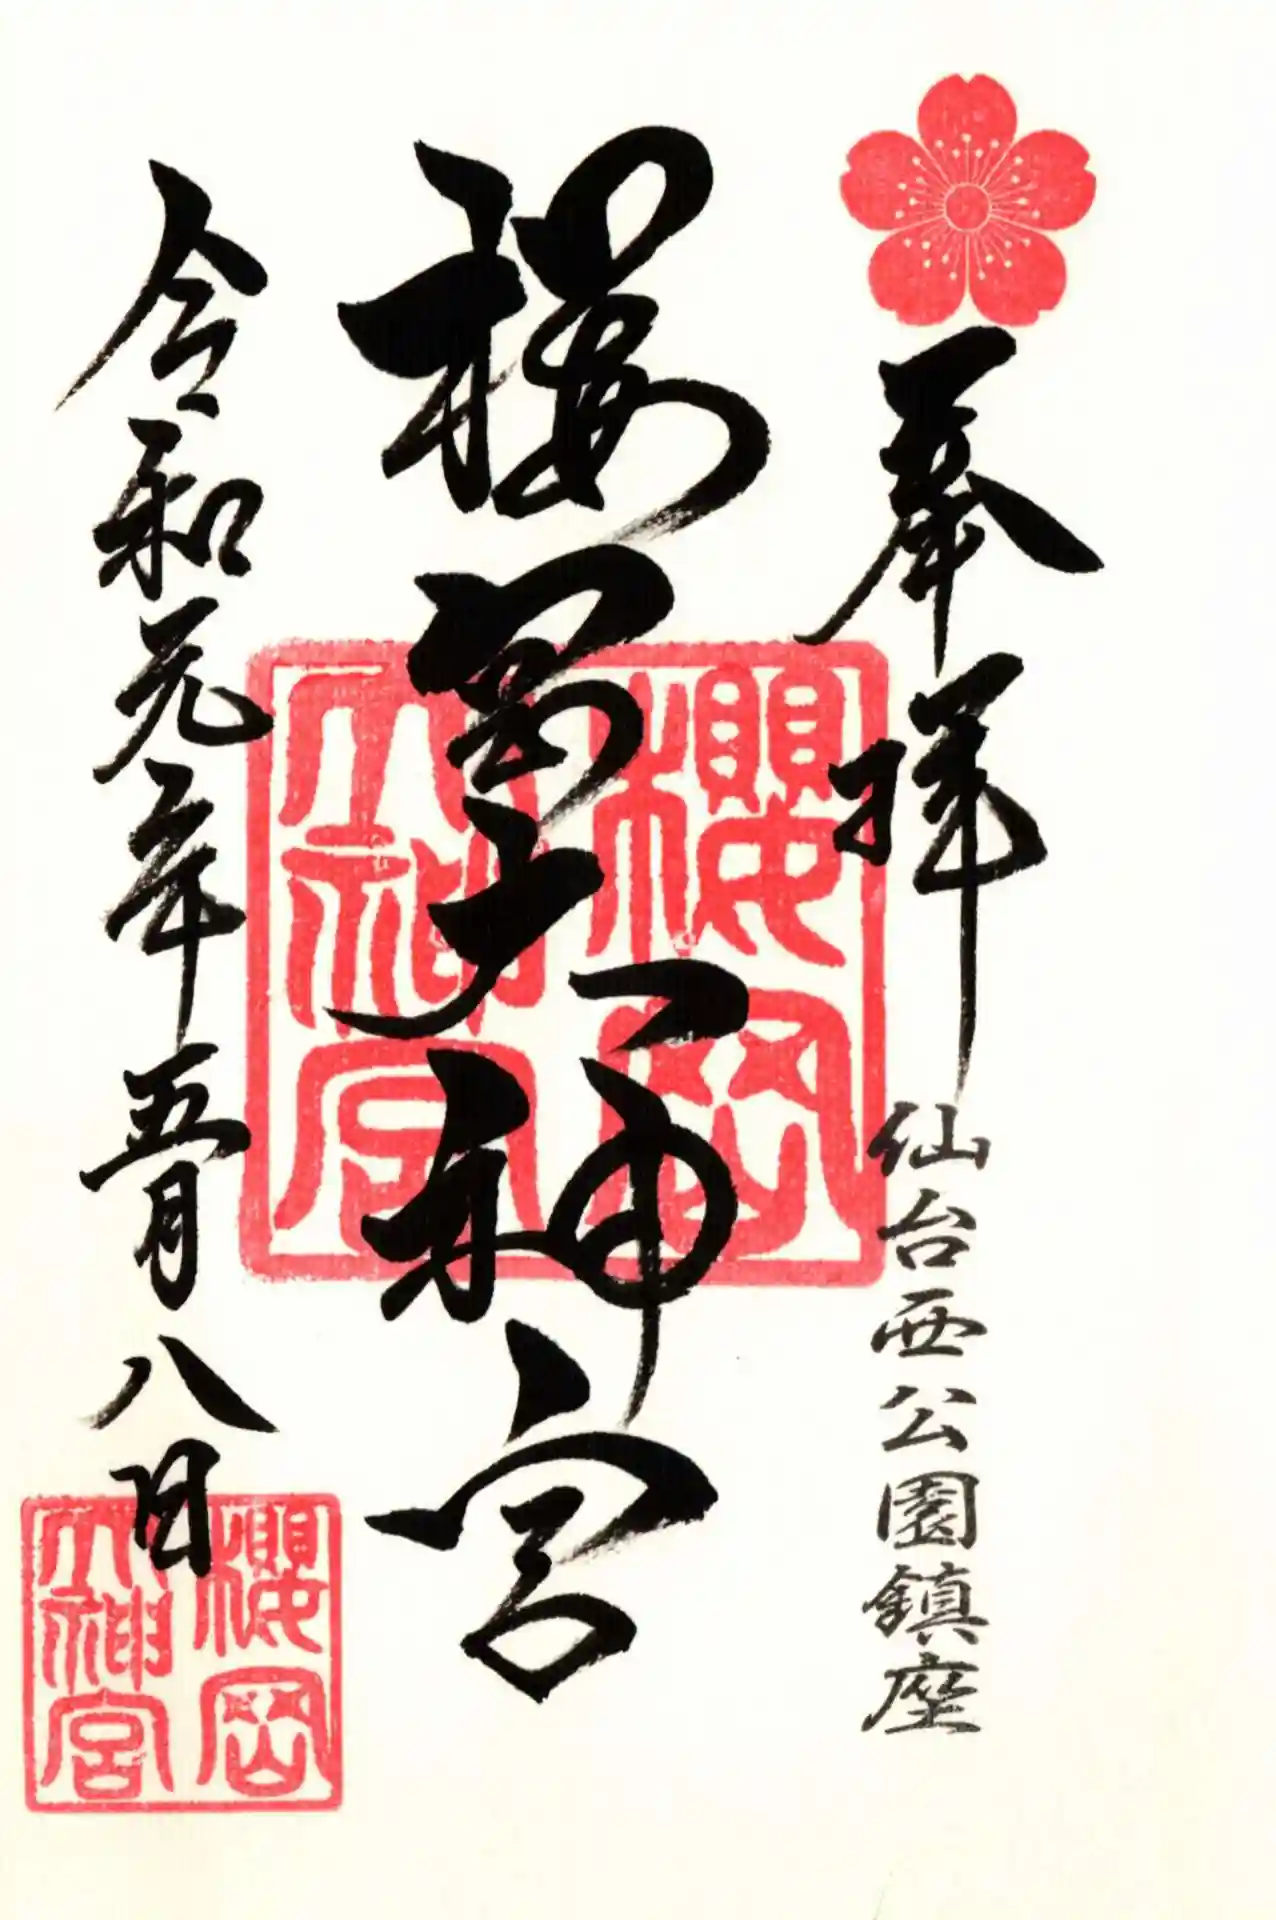 奉拝
仙台西公園鎮座
櫻岡大神宮
櫻岡
大神宮
令和元年五月八日
櫻岡
大神宮